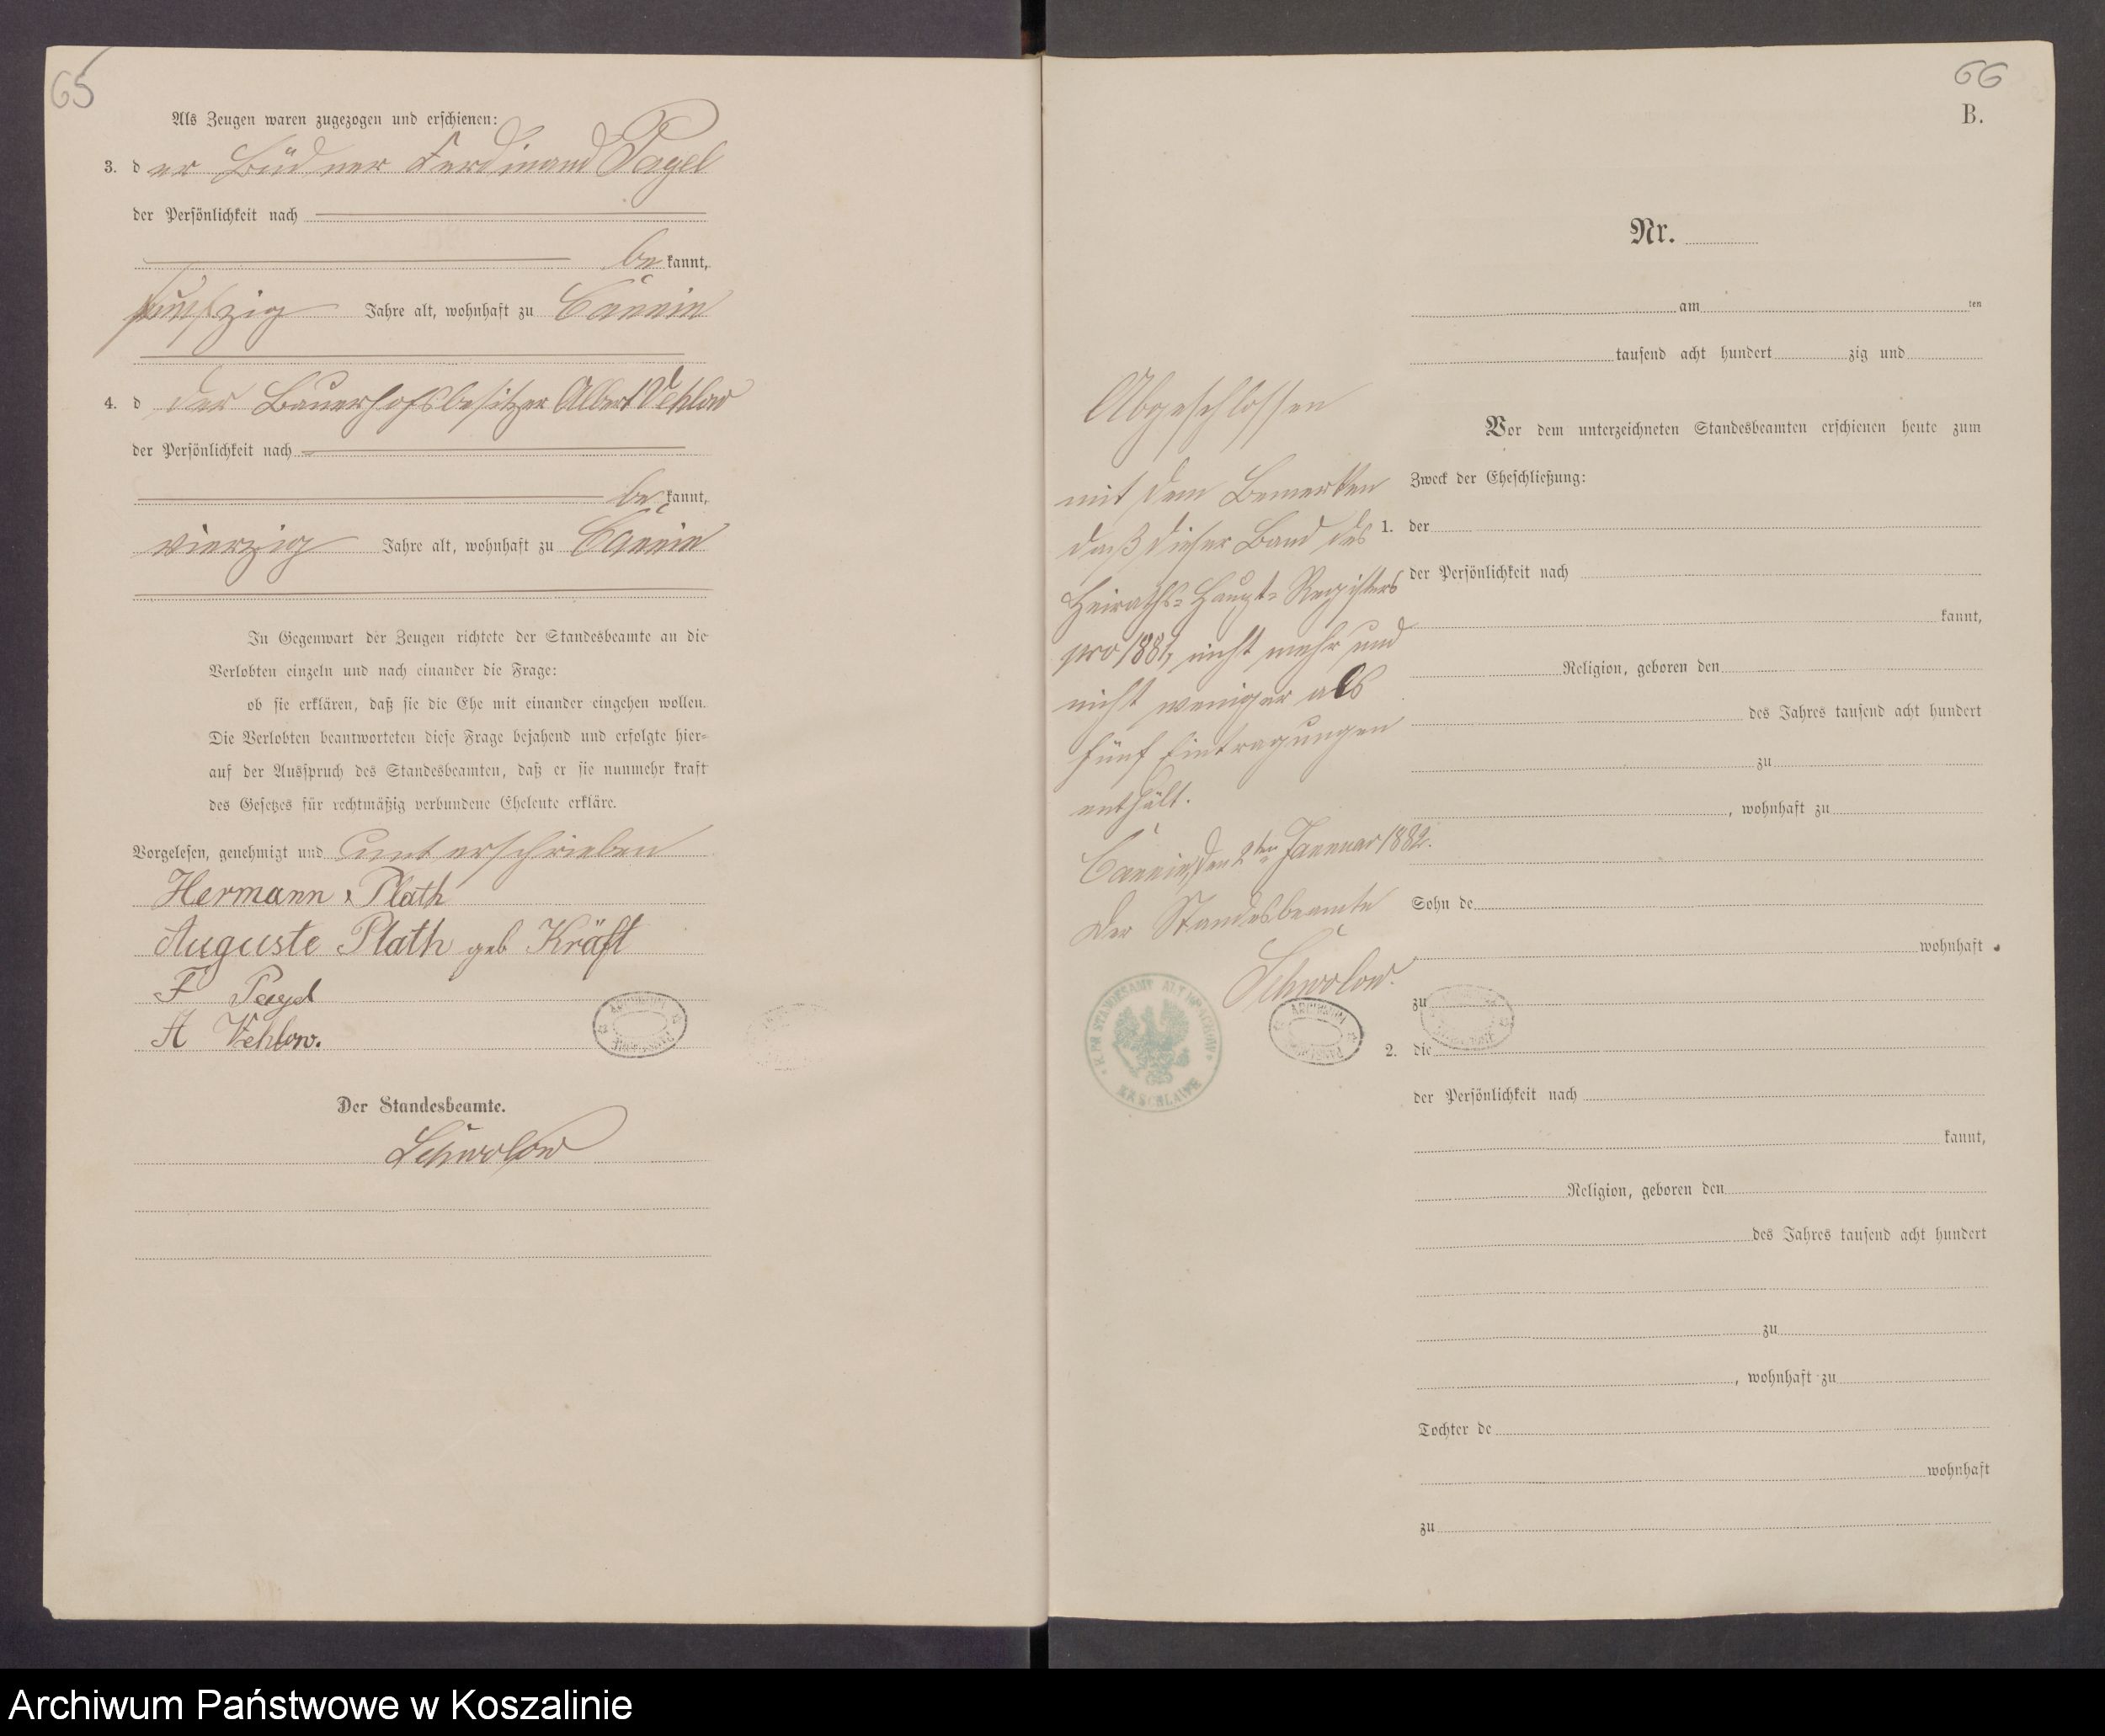 65
Als Zeugen waren zugezogen und erschienen:
3. d er Büdner Ferdinand Pagel
der Persönlichkeit nach
be kannt,
fünfzig Jahre alt, wohnhaft zu Cannin
4. d der Bauerhofsbesitzer Albert Vehlow
der Persönlichkeit nach
be kannt,
vierzig Jahre alt, wohnhaft zu Cannin
In Gegenwart der Zeugen richtete der Standesbeamte an die
Verlobten einzeln und nach einander die Frage:
ob sie erklären, daß sie die Ehe mit einander eingehen wollen.
Die Verlobten beantworteten diese Frage bejahend und erfolgte hier-
auf der Ausspruch des Standesbeamten, daß er sie nunmehr kraft
des Gesetzes für rechtmäßig verbundene Eheleute erkläre.
Vorgelesen, genehmigt und unterschrieben
Hermann Plath
Auguste Plath geb Kräft
F Pagel
A Vehlow.
Der Standesbeamte.
Schwolow
66
B.
Nr.
am ten
tausend acht hundert zig und
Vor dem unterzeichneten Standesbeamten erschienen heute zum
Zweck der Eheschließung:
1. der
der Persönlichkeit nach
kannt,
Religion, geboren den
des Jahres tausend acht hundert
zu
, wohnhaft zu
Sohn de
wohnhaft
zu
2. die
der Persönlichkeit nach
kannt,
Religion, geboren den
des Jahres tausend acht hundert
zu
, wohnhaft zu
Tochter de
wohnhaft
zu
Abgeschlossen
mit dem Bemerken
daß dieser Band des
Heiraths-Haupt-Registers
pro 1881, nicht mehr und
nicht weniger als
fünf Eintragungen
enthält.
Cannin, den 2ten Januar 1882.
Der Standesbeamte
Schwolow.
STANDESAMT ALT
KR SCHLAWE
Archiwum Państwowe w Koszalinie